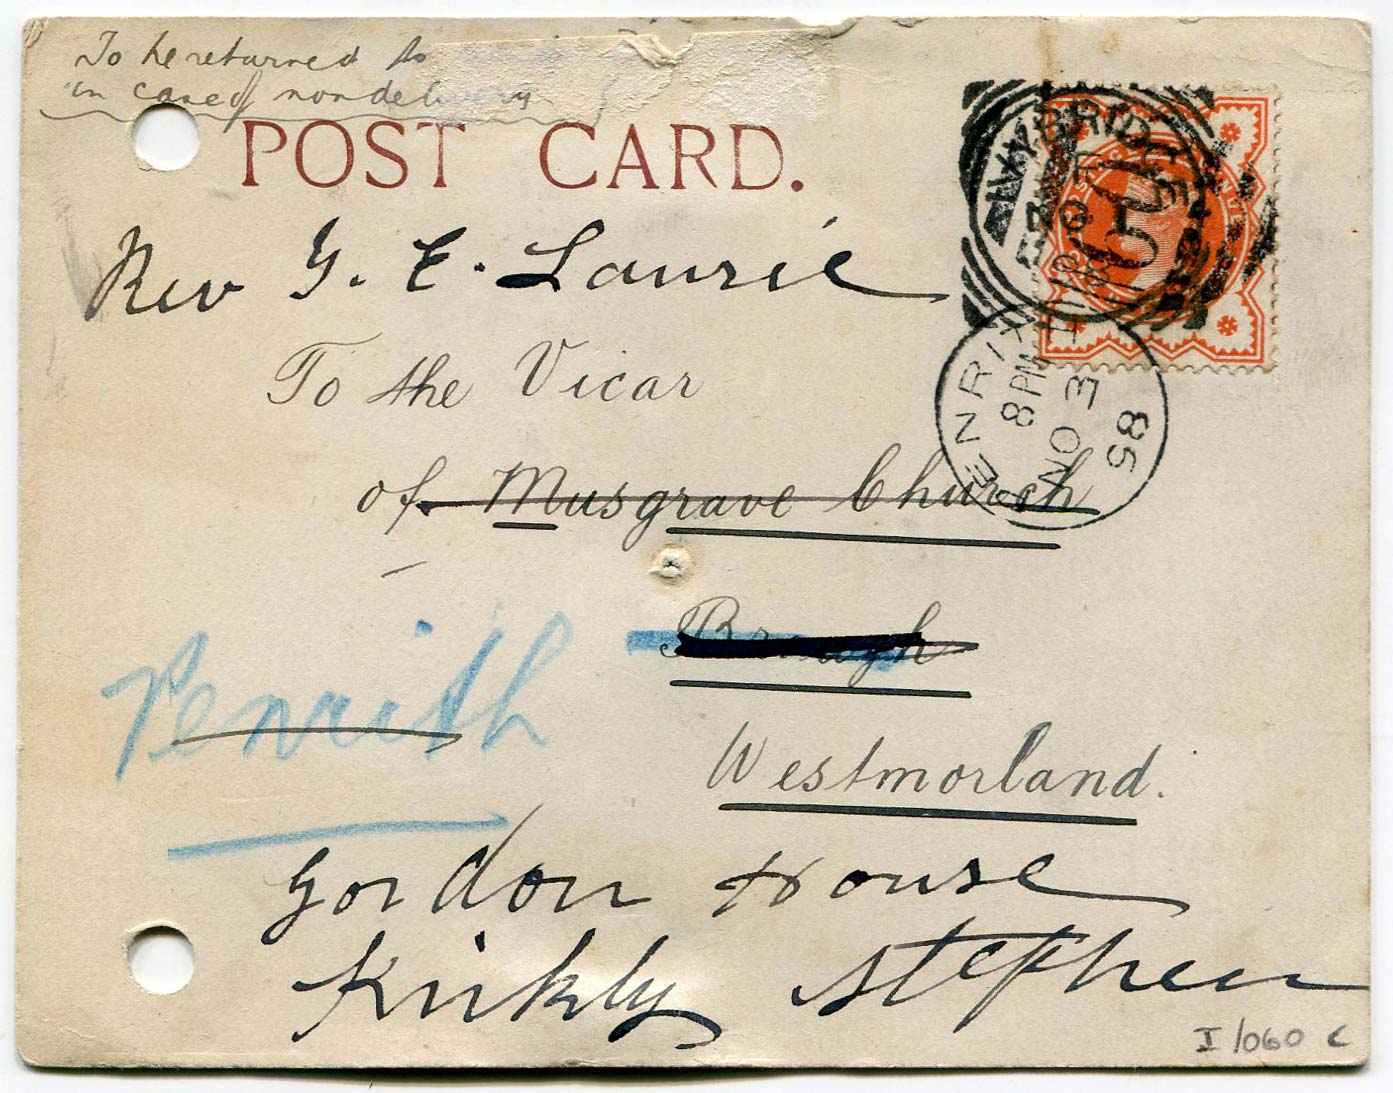 To be returned to
in case of non delivery
POST CARD.
HAYBRIDGE
Rev G. E. Laurie
PENRITH
8 PM
NO 3
85
To the Vicar
of Musgrave Church
Brough
Penrith
Westmorland.
Gordon House
Kirkby Stephen
I/060 c